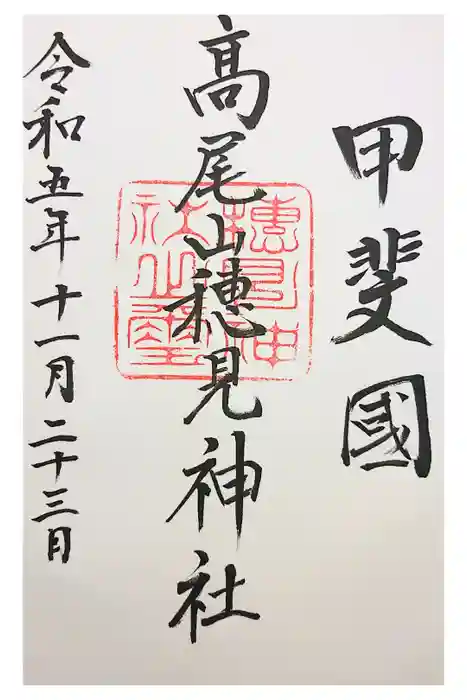 甲斐國
高尾山穂見神社
穂見神
社之璽
令和五年十一月二十三日